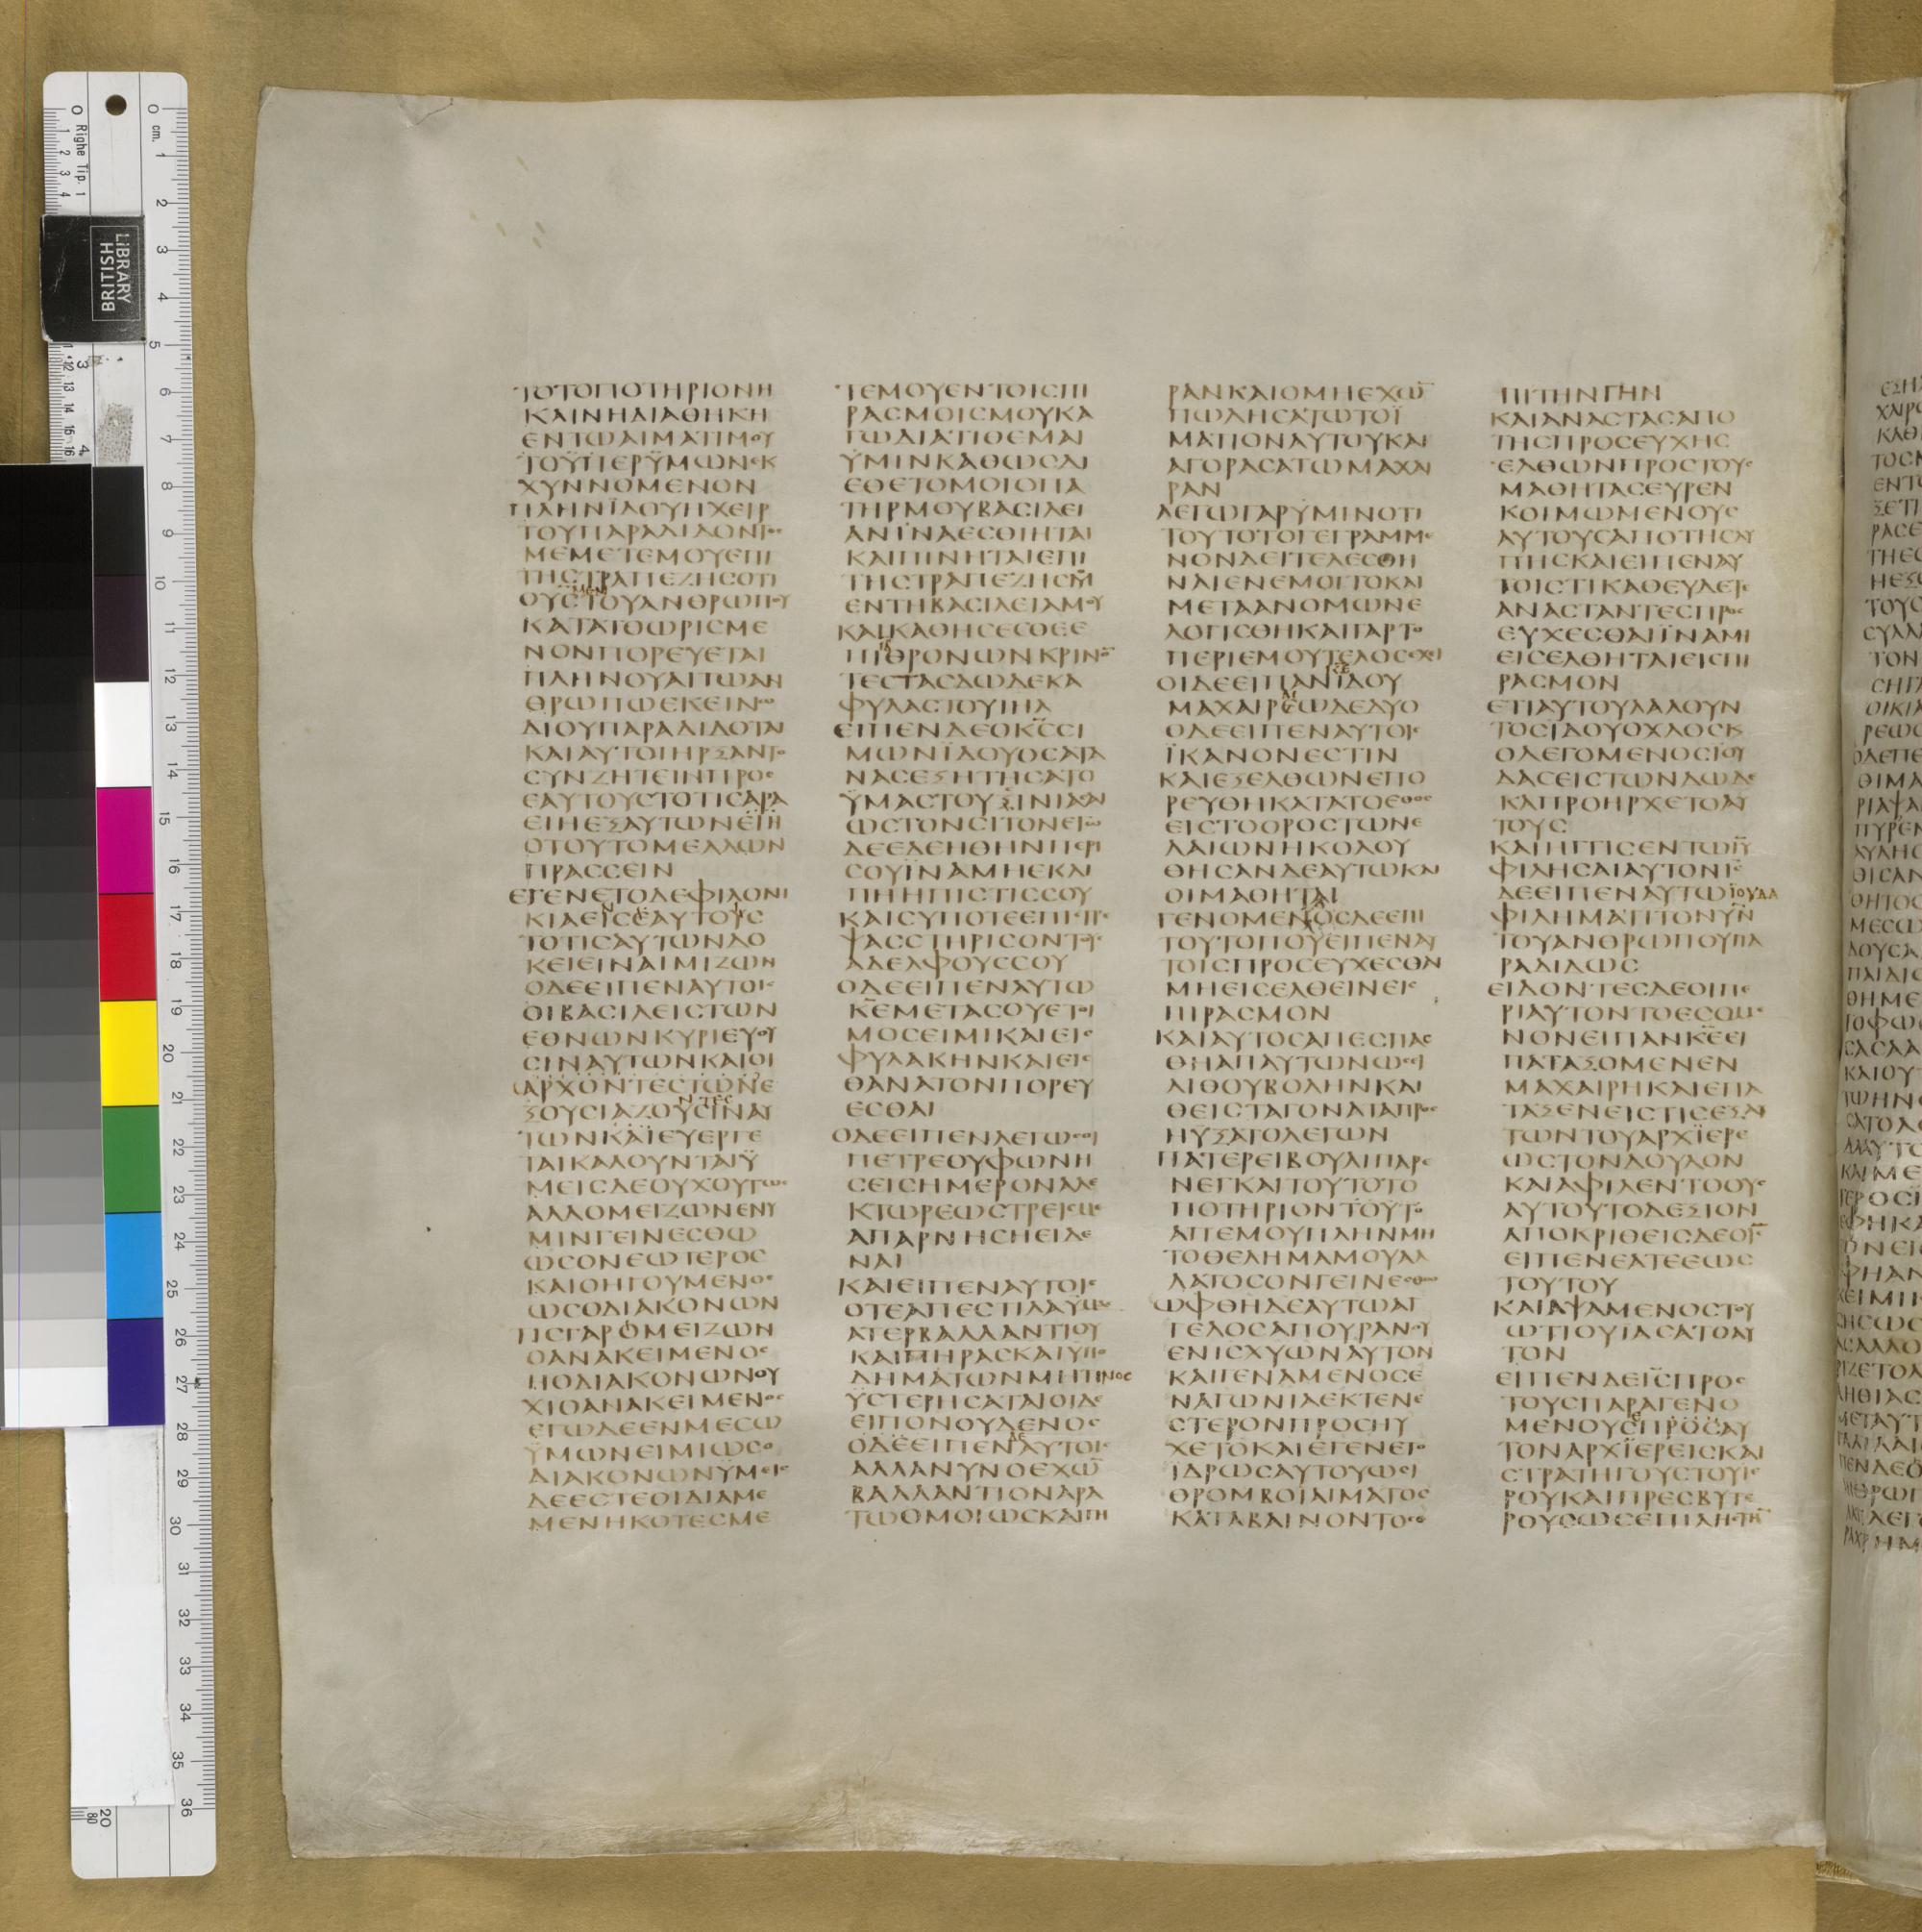 ΤΟΤΟΠΟΤΗΡΙΟΝΗ
ΚΑΙΝΗΔΙΑΘΗΚΗ
ΕΝΤΩΑΙΜΑΤΙΜΟΥ
ΤΟΫΠΕΡΫΜΩΝΕΚ
ΧΥΝΝΟΜΕΝΟΝ
ΠΛΗΝΪΔΟΥΗΧΕΙΡ
ΤΟΥΠΑΡΑΔΙΔΟΝΤΟϹ
ΜΕΜΕΤΕΜΟΥΕΠΙ
ΤΗϹΤΡΑΠΕΖΗϹΟΤΙ
ΟΥϹΤΟΥΑΝΘΡΩΠΟΥ
ΚΑΤΑΤΟΩΡΙϹΜΕ
ΝΟΝΠΟΡΕΥΕΤΑΙ
ΠΛΗΝΟΥΑΙΤΩΑΝ
ΘΡΩΠΩΕΚΕΙΝΩ
ΔΙΟΥΠΑΡΑΔΙΔΟΤΑΙ
ΚΑΙΑΥΤΟΙΗΡΞΑΝΤΟ
ϹΥΝΖΗΤΕΙΝΠΡΟϹ
ΕΑΥΤΟΥϹΤΟΤΙϹΑΡΑ
ΕΙΗΕΞΑΥΤΩΝΕΙΗ
ΟΤΟΥΤΟΜΕΛΛΩΝ
ΠΡΑϹϹΕΙΝ
ΕΓΕΝΕΤΟΔΕΦΙΛΟΝΙ
ΚΙΑΕΙϹΕΑΥΤΟΥϹ
ΤΟΤΙϹΑΥΤΩΝΔΟ
ΚΕΙΕΙΝΑΙΜΙΖΩΝ
ΟΔΕΕΙΠΕΝΑΥΤΟΙϹ
ΟΙΒΑϹΙΛΕΙϹΤΩΝ
ΕΘΝΩΝΚΥΡΙΕΥΟΥ
ϹΙΝΑΥΤΩΝΚΑΙΟΙ
ΑΡΧΟΝΤΕϹΤΩΝΕ
ΞΟΥϹΙΑΖΟΥϹΙΝΑΥ
ΤΩΝΚΑΙΕΥΕΡΓΕ
ΤΑΙΚΑΛΟΥΝΤΑΙΫ
ΜΕΙϹΔΕΟΥΧΟΥΤΩϹ
ΑΛΛΟΜΕΙΖΩΝΕΝΥ
ΜΙΝΓΕΙΝΕϹΘΩ
ΩϹΟΝΕΩΤΕΡΟϹ
ΚΑΙΟΗΓΟΥΜΕΝΟϹ
ΩϹΟΔΙΑΚΟΝΩΝ
ΤΙϹΓΑΡΟΜΕΙΖΩΝ
ΟΑΝΑΚΕΙΜΕΝΟϹ
ΗΟΔΙΑΚΟΝΩΝΟΥ
ΧΙΟΑΝΑΚΕΙΜΕΝΟϹ
ΕΓΩΔΕΕΝΜΕϹΩ
ΫΜΩΝΕΙΜΙΩϹΟ
ΔΙΑΚΟΝΩΝΫΜΕΙϹ
ΔΕΕϹΤΕΟΙΔΙΑΜΕ
ΜΕΝΗΚΟΤΕϹΜΕ
ΤΕΜΟΥΕΝΤΟΙϹΠΙ
ΡΑϹΜΟΙϹΜΟΥΚΑ
ΓΩΔΙΑΤΙΘΕΜΑΙ
ΫΜΙΝΚΑΘΩϹΔΙ
ΕΘΕΤΟΜΟΙΟΠΑ
ΤΗΡΜΟΥΒΑϹΙΛΕΙ
ΑΝΙΝΑΕϹΘΙΗΤΑΙ
ΚΑΙΠΙΝΗΤΑΙΕΠΙ
ΤΗϹΤΡΑΠΕΖΗϹΜΟΥ
ΕΝΤΗΒΑϹΙΛΕΙΑΜΟΥ
ΚΑΙΚΑΘΗϹΕϹΘΕΕ
ΠΙΘΡΟΝΩΝΚΡΙΝΟ
ΤΕϹΤΑϹΔΩΔΕΚΑ
ΦΥΛΑϹΤΟΥΙΗΛ
ΕΙΠΕΝΔΕΟΚϹϹΙ
ΜΩΝΪΔΟΥΟϹΑΤΑ
ΝΑϹΕΞΗΤΗϹΑΤΟ
ΫΜΑϹΤΟΥϹΙΝΙΑϹΑΙ
ΩϹΤΟΝϹΙΤΟΝΕΓΩ
ΔΕΕΔΕΗΘΗΝΠΕΡΙ
ϹΟΥΪΝΑΜΗΕΚΛΙ
ΠΗΗΠΙϹΤΙϹϹΟΥ
ΚΑΙϹΥΠΟΤΕΕΠΙϹΤΡΕ
ΨΑϹϹΤΗΡΙϹΟΝΤΟΥϹ
ΑΔΕΛΦΟΥϹϹΟΥ
ΟΔΕΕΙΠΕΝΑΥΤΩ
ΚΕΜΕΤΑϹΟΥΕΤΟΙ
ΜΟϹΕΙΜΙΚΑΙΕΙϹ
ΦΥΛΑΚΗΝΚΑΙΕΙϹ
ΘΑΝΑΤΟΝΠΟΡΕΥ
ΕϹΘΑΙ
ΟΔΕΕΙΠΕΝΛΕΓΩϹΟΙ
ΠΕΤΡΕΟΥΦΩΝΗ
ϹΕΙϹΗΜΕΡΟΝΑΛΕ
ΚΤΩΡΕΩϹΤΡΕΙϹΜΕ
ΑΠΑΡΝΗϹΗΕΙΔΕ
ΝΑΙ
ΚΑΙΕΙΠΕΝΑΥΤΟΙϹ
ΟΤΕΑΠΕϹΤΙΛΑΫΜΑϹ
ΑΤΕΡΒΑΛΛΑΝΤΙΟΥ
ΚΑΙΠΗΡΑϹΚΑΙΥΠΟ
ΔΗΜΑΤΩΝΜΗΤΙΝΟϹ
ΫϹΤΕΡΗϹΑΤΑΙΟΙΔΕ
ΕΙΠΟΝΟΥΔΕΝΟϹ
ΟΔΕΕΙΠΕΝΑΥΤΟΙϹ
ΑΛΛΑΝΥΝΟΕΧΩ
ΒΑΛΛΑΝΤΙΟΝΑΡΑ
ΤΩΟΜΟΙΩϹΚΑΙΠΗ
ΡΑΝΚΑΙΟΜΗΕΧΩ
ΠΩΛΗϹΑΤΩΤΟΪ
ΜΑΤΙΟΝΑΥΤΟΥΚΑΙ
ΑΓΟΡΑϹΑΤΩΜΑΧΑΙ
ΡΑΝ
ΛΕΓΩΓΑΡΥΜΙΝΟΤΙ
ΤΟΥΤΟΤΟΓΕΓΡΑΜΜΕ
ΝΟΝΔΕΙΤΕΛΕϹΘΗ
ΝΑΙΕΝΕΜΟΙΤΟΚΑΙ
ΜΕΤΑΑΝΟΜΩΝΕ
ΛΟΓΙϹΘΗΚΑΙΓΑΡΤΟ
ΠΕΡΙΕΜΟΥΤΕΛΟϹΕΧΕΙ
ΟΙΔΕΕΙΠΑΝΪΔΟΥ
ΜΑΧΑΙΡΕΩΔΕΔΥΟ
ΟΔΕΕΙΠΕΝΑΥΤΟΙϹ
ΪΚΑΝΟΝΕϹΤΙΝ
ΚΑΙΕΞΕΛΘΩΝΕΠΟ
ΡΕΥΘΗΚΑΤΑΤΟΕΘΟϹ
ΕΙϹΤΟΟΡΟϹΤΩΝΕ
ΛΑΙΩΝΗΚΟΛΟΥ
ΘΗϹΑΝΔΕΑΥΤΩΚΑΙ
ΟΙΜΑΘΗΤΑΙ
ΓΕΝΟΜΕΝΟϹΔΕΕΠΙ
ΤΟΥΤΟΠΟΥΕΙΠΕΝΑΥ
ΤΟΙϹΠΡΟϹΕΥΧΕϹΘΑΙ
ΜΗΕΙϹΕΛΘΕΙΝΕΙϹ
ΠΙΡΑϹΜΟΝ
ΚΑΙΑΥΤΟϹΑΠΕϹΠΑϹ
ΘΗΑΠΑΥΤΩΝΩϹΕΙ
ΛΙΘΟΥΒΟΛΗΝΚΑΙ
ΘΕΙϹΤΑΓΟΝΑΤΑΠΡΟϹ
ΗΥΞΑΤΟΛΕΓΩΝ
ΠΑΤΕΡΕΙΒΟΥΛΙΠΑΡΕ
ΝΕΓΚΑΙΤΟΥΤΟΤΟ
ΠΟΤΗΡΙΟΝΤΟΥΤΟ
ΑΠΕΜΟΥΠΛΗΝΜΗ
ΤΟΘΕΛΗΜΑΜΟΥΑΛ
ΛΑΤΟϹΟΝΓΕΙΝΕϹΘΩ
ΩΦΘΗΔΕΑΥΤΩΑΓ
ΓΕΛΟϹΑΠΟΥΡΑΝΟΥ
ΕΝΙϹΧΥΩΝΑΥΤΟΝ
ΚΑΙΓΕΝΑΜΕΝΟϹΕ
ΝΑΓΩΝΙΑΕΚΤΕΝΕ
ϹΤΕΡΟΝΠΡΟϹΗΥ
ΧΕΤΟΚΑΙΕΓΕΝΕΤΟ
ΪΔΡΩϹΑΥΤΟΥΩϹΕΙ
ΘΡΟΜΒΟΙΑΙΜΑΤΟϹ
ΚΑΤΑΒΑΙΝΟΝΤΟϹΕ
ΠΙΤΗΝΓΗΝ
ΚΑΙΑΝΑϹΤΑϹΑΠΟ
ΤΗϹΠΡΟϹΕΥΧΗϹ
ΕΛΘΩΝΠΡΟϹΤΟΥϹ
ΜΑΘΗΤΑϹΕΥΡΕΝ
ΚΟΙΜΩΜΕΝΟΥϹ
ΑΥΤΟΥϹΑΠΟΤΗϹΛΥ
ΠΗϹΚΑΙΕΙΠΕΝΑΥ
ΤΟΙϹΤΙΚΑΘΕΥΔΕΤΕ
ΑΝΑϹΤΑΝΤΕϹΠΡΟϹ
ΕΥΧΕϹΘΑΙΪΝΑΜΙ
ΕΙϹΕΛΘΗΤΑΙΕΙϹΠΙ
ΡΑϹΜΟΝ
ΕΤΙΑΥΤΟΥΛΑΛΟΥΝ
ΤΟϹΙΔΟΥΟΧΛΟϹΚ
ΟΛΕΓΟΜΕΝΟϹΙΟΥ
ΔΑϹΕΙϹΤΩΝΔΩΔΕ
ΚΑΠΡΟΗΡΧΕΤΟΑΥ
ΤΟΥϹ
ΚΑΙΗΓΓΙϹΕΝΤΩΙΥ
ΦΙΛΗϹΑΙΑΥΤΟΝΙϹ
ΔΕΕΙΠΕΝΑΥΤΩΪΟΥΔΑ
ΦΙΛΗΜΑΤΙΤΟΝΥΝ
ΤΟΥΑΝΘΡΩΠΟΥΠΑ
ΡΑΔΙΔΩϹ
ΕΙΔΟΝΤΕϹΔΕΟΙΠΕ
ΡΙΑΥΤΟΝΤΟΕϹΟΜΕ
ΝΟΝΕΙΠΑΝΚΕΕΙ
ΠΑΤΑΞΟΜΕΝΕΝ
ΜΑΧΑΙΡΗΚΑΙΕΠΑ
ΤΑΞΕΝΕΙϹΤΙϹΕΞΑΥ
ΤΩΝΤΟΥΑΡΧΪΕΡΕ
ΩϹΤΟΝΔΟΥΛΟΝ
ΚΑΙΑΦΙΛΕΝΤΟΟΥϹ
ΑΥΤΟΥΤΟΔΕΞΙΟΝ
ΑΠΟΚΡΙΘΕΙϹΔΕΟΙϹ
ΕΙΠΕΝΕΑΤΕΕΩϹ
ΤΟΥΤΟΥ
ΚΑΙΑΨΑΜΕΝΟϹΤΟΥ
ΩΤΙΟΥΙΑϹΑΤΟΑΥ
ΤΟΝ
ΕΙΠΕΝΔΕΙϹΠΡΟϹ
ΤΟΥϹΠΑΡΑΓΕΝΟ
ΜΕΝΟΥϹΠΡΟϹΑΥ
ΤΟΝΑΡΧΪΕΡΕΙϹΚΑΙ
ϹΤΡΑΤΗΓΟΥϹΤΟΥΙΕ
ΡΟΥΚΑΙΠΡΕϹΒΥΤΕ
ΡΟΥϹΩϹΕΠΙΛΗϹΤΗ
BRITISH
LIBRARY
Righe Tip. 1
cm.